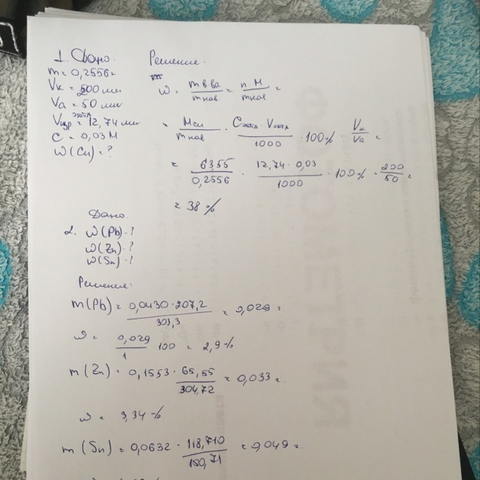 1. Дано: Решение:
m = 0,2556 г
Vк = 200 мл
Vа = 50 мл
V = 12,74 мл
C = 0,03 М
ω(Cu) = ?
ω = m в ва / m нав = n · M / m нав =
= M Cu / m нав · C · V / 1000 · 100% · Vк / Vа
= 63,55 / 0,2556 · 12,74 · 0,03 / 1000 · 100% · 200 / 50 =
= 38 %
Дано:
2. ω(Pb) - ?
ω(Zn) - ?
ω(Sn) - ?
Решение:
m(Pb) = 0,0430 · 207,2 / 303,3 = 0,029 г
ω = 0,029 / 1 · 100 = 2,9 %
m(Zn) = 0,1553 · 65,55 / 304,72 = 0,033 г
ω = 3,34 %
m(Sn) = 0,0632 · 118,710 / 150,71 = 0,049 г